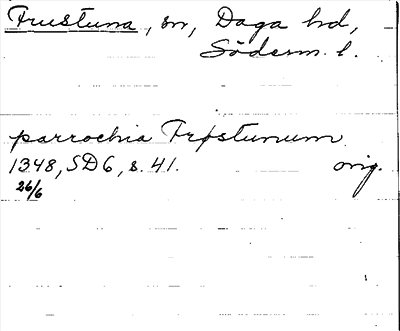 Frustuna, sn, Daga hd,
Söderm. l.
parrochia Frøstunum
1348, SD6, s. 41. orig.
26/6